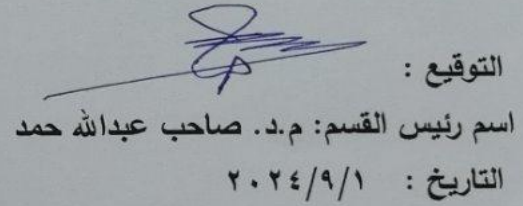 التوقيع :
اسم رئيس القسم: م.د. صاحب عبدالله حمد
التاريخ : ٢٠٢٤/٩/١